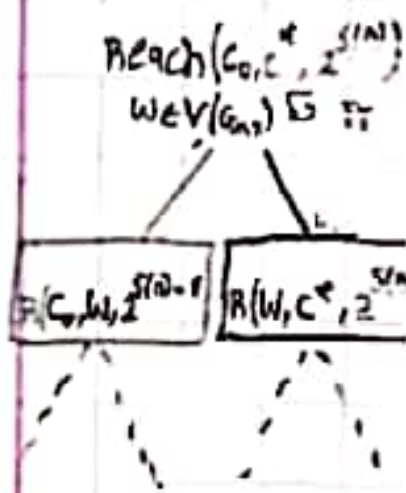 Reach(C₀, C*, 2^S(n))
W∈V(G
R(C₀, W, 2^S(n)-1
R(W, C*, 2^S(n)